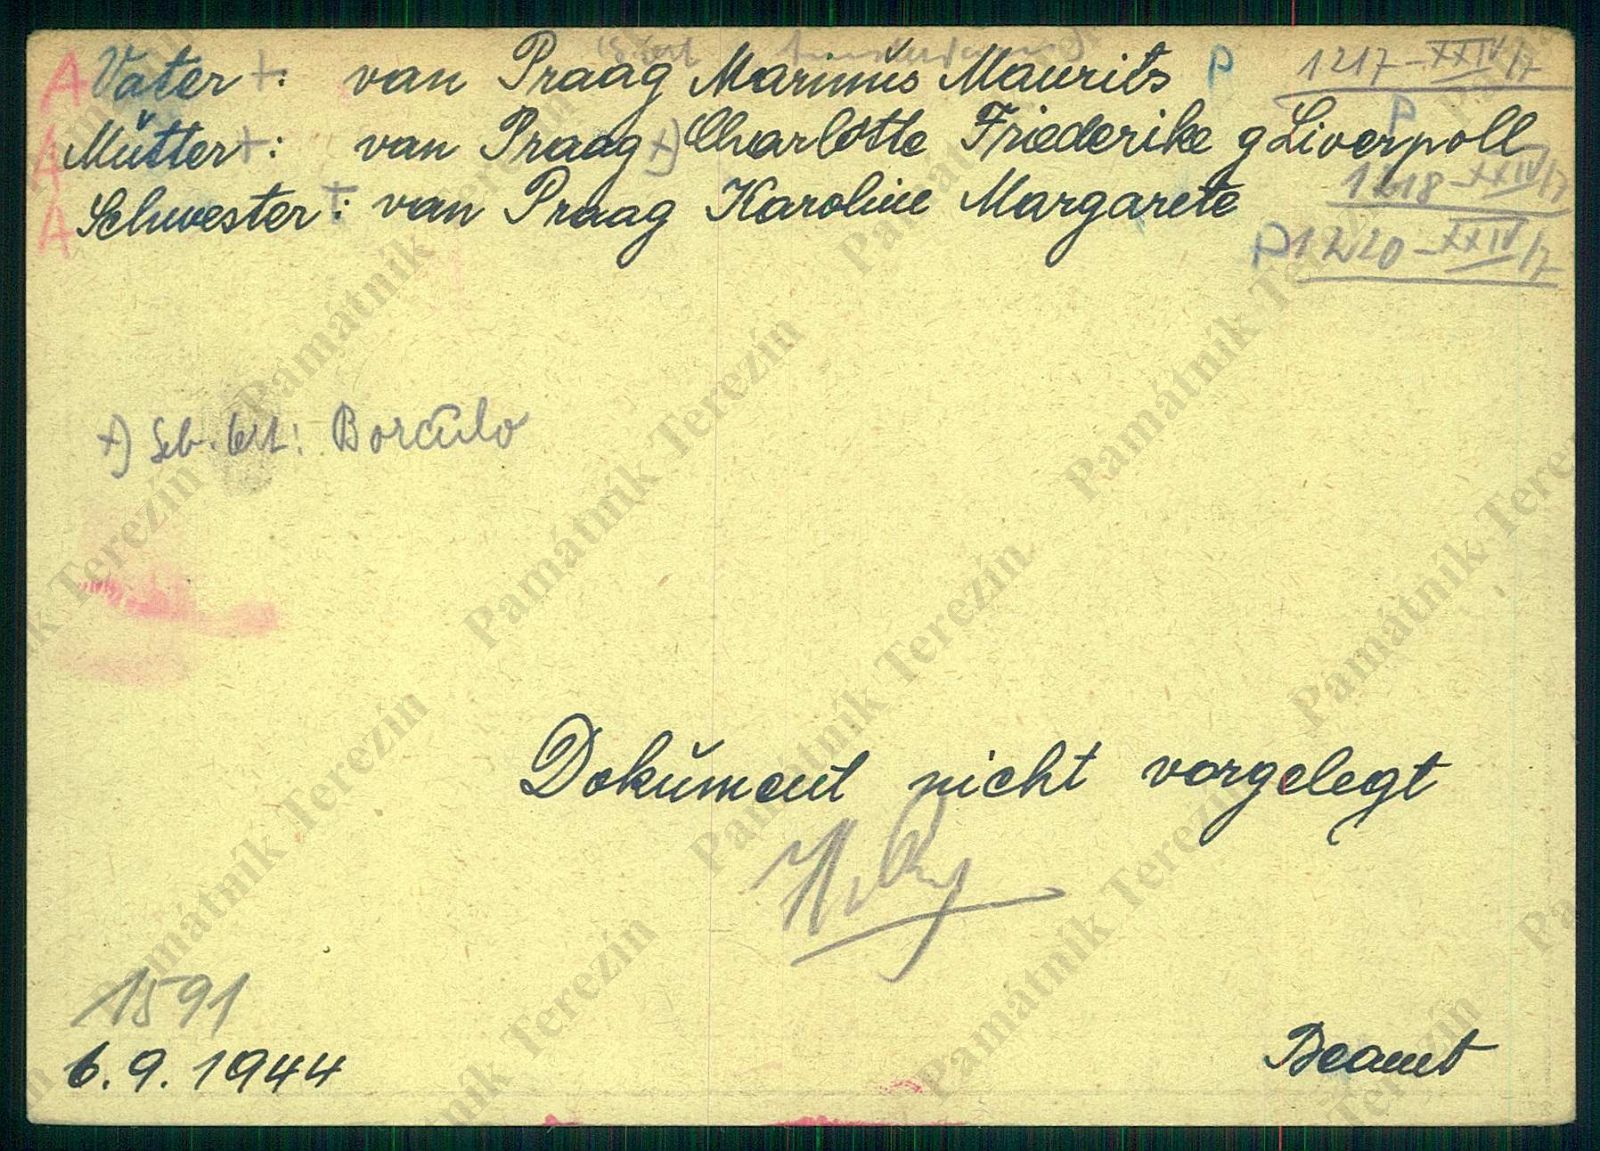 A Vater +: van Praag Marinus Maurits P 1217-XXIV/7
A Mutter +: van Praag +) Charlotte Friederike g Liverpoll P 1218-XXIV/7
A Schwester +: van Praag Karoline Margarete P 1220-XXIV/7
+) Geb. Ort: Borculo
Dokument nicht vorgelegt
1591
6.9.1944
Beamt
Památník Terezín